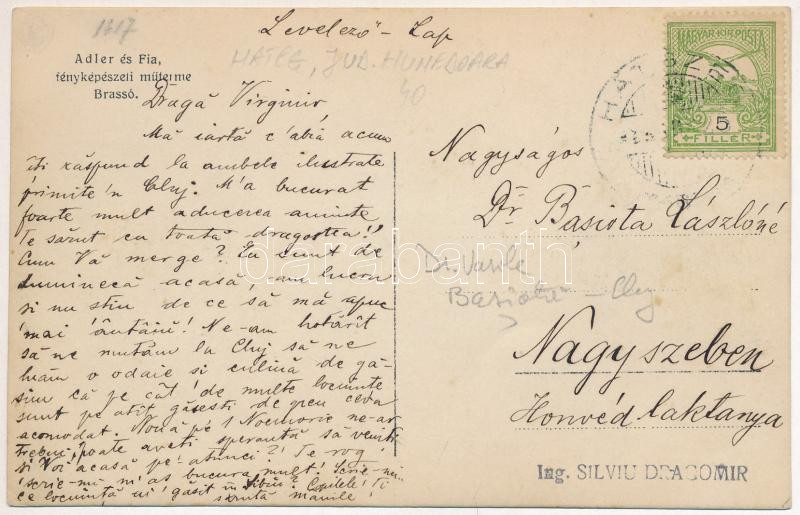 1717
Levelező - Lap
Adler és Fia,
fényképészeti műterme
Brassó.
HATEG, JUD. HUNEDOARA
40
MAGYAR KIR. POSTA
5
FILLÉR
Dragă
Mă iartă c'abia acum
îți răspund la ambele ilustrate
primite'n Cluj. M'a bucurat
foarte mult aducerea aminte
Te sărut cu toată dragostea!
Cum Vă merge? Eu sunt de
Duminecă acasă, am lucru
si nu stiu de ce să mă apuc
mai întâiu! Ne-am hotărît
să ne mutăm la Cluj să ne
luăm o odaie si culină de gă-
sim că pe cât de multe locuinte
sunt pe atît găsesti de greu ceva
acomodat. Nouă pe 1 Noemvrie ne-ar
trebui, poate aveti sperantă să veniti
si Voi acasă pe atunci? Te rog
scrie-mi m'as bucura mult! Scrie-mi
ce locuintă ai găsit în Sibiu? Ti
sărută mânile!
Nagyságos
Dr. Basiota Lászlóné
Dr. Vasile
Basiota - Cluj
Nagyszeben
Honvéd laktanya
Ing. SILVIU DRAGOMIR
darabanth